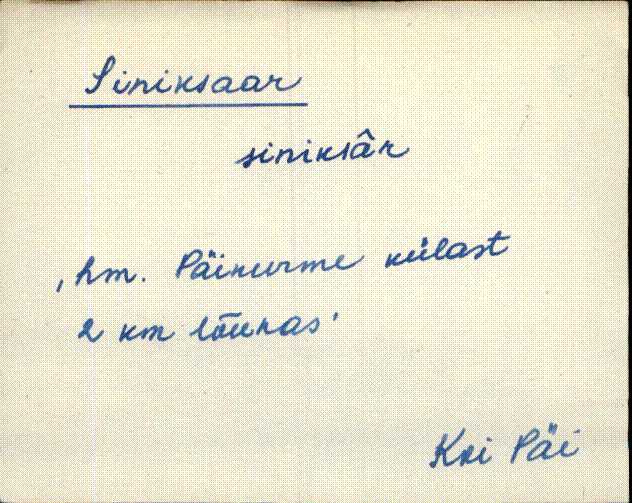 Siniksaar
siniksâr
‚hm. Päinurme külast
2 km lõunas'
Koi Päi